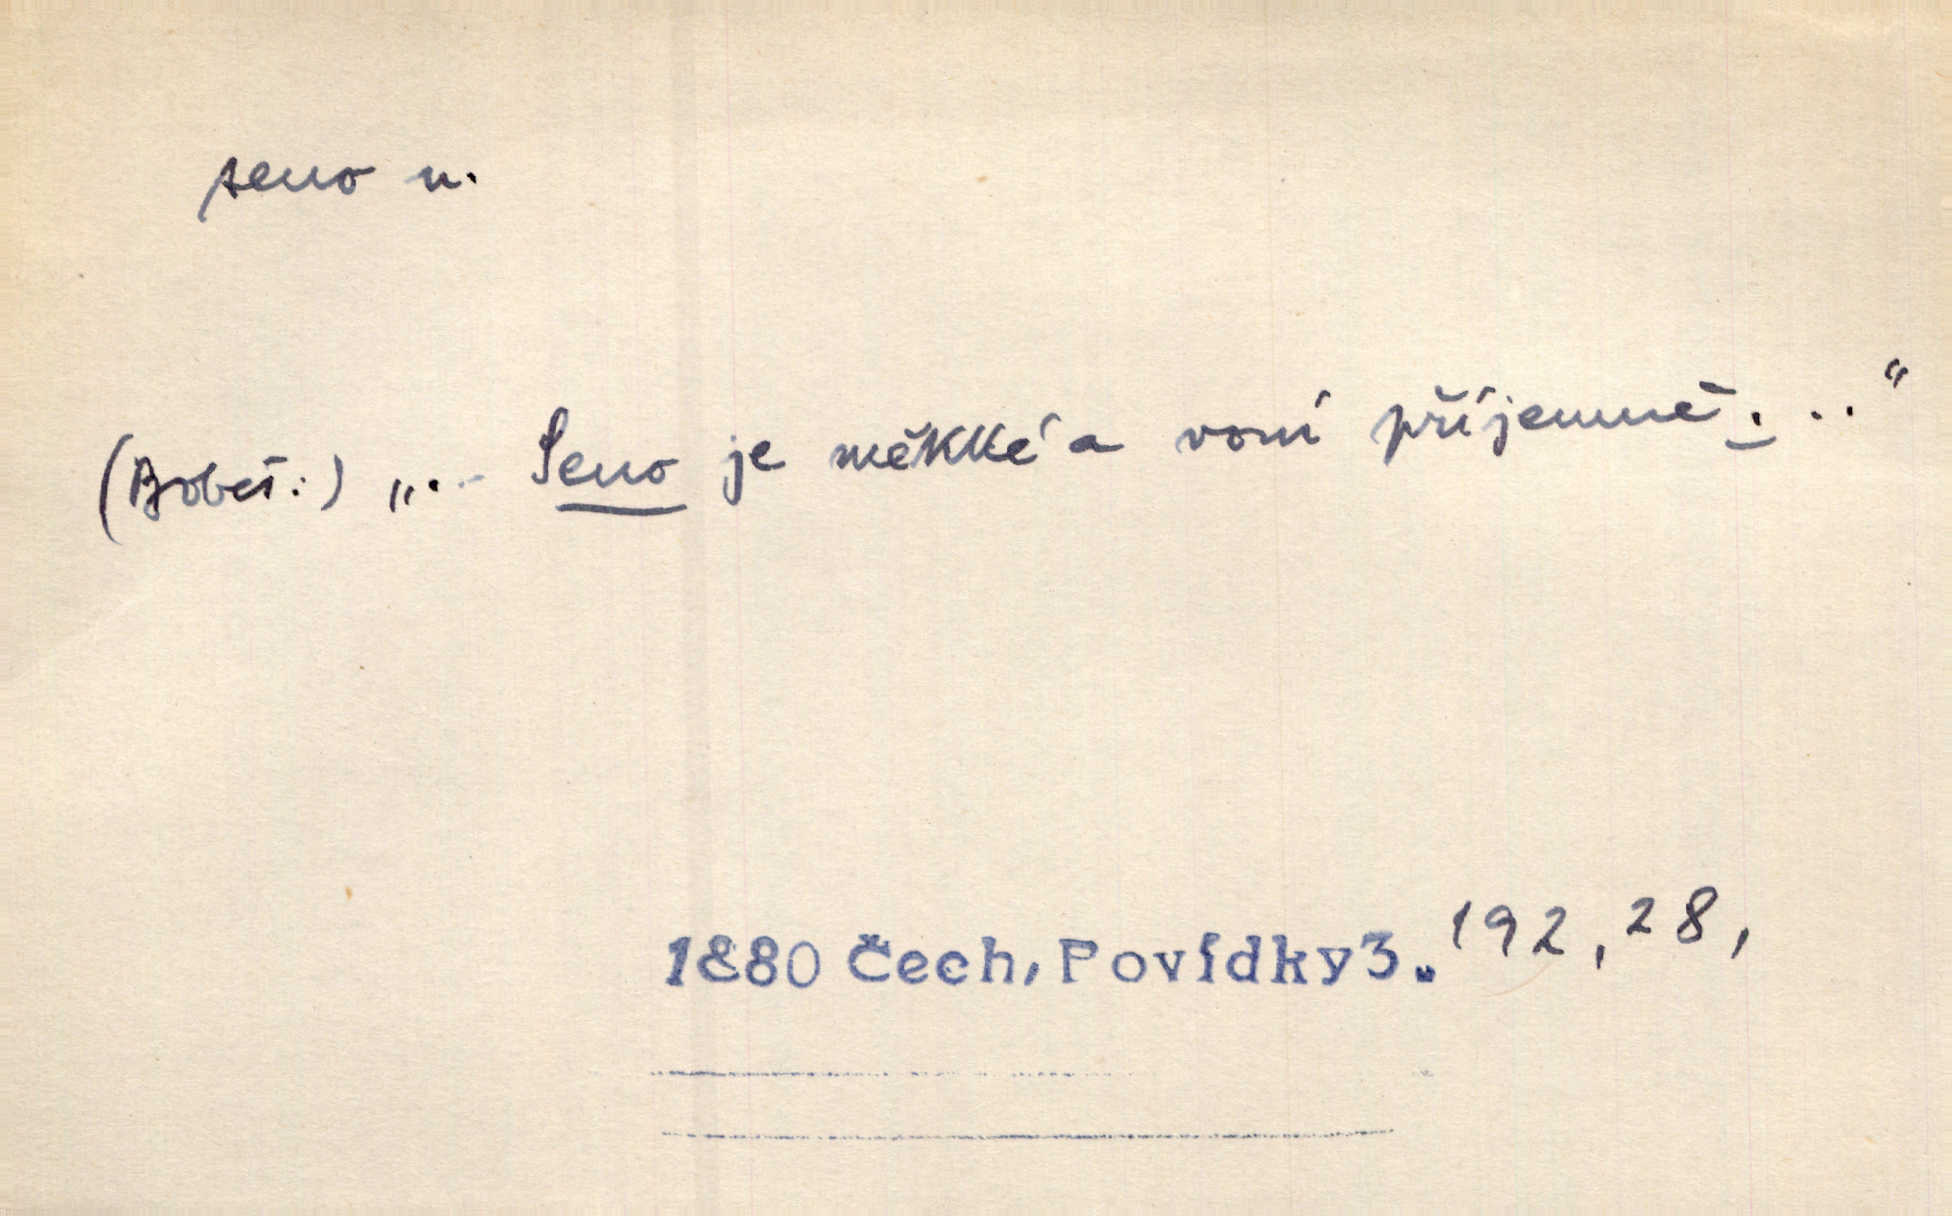 seno n.
(Bobeš:) „... Seno je měkké a voní příjemně. ..“
1880 Čech, Povídky 3. 192, 28,